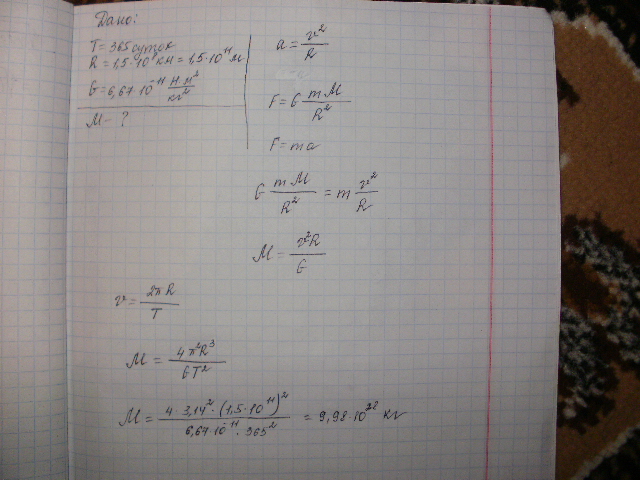 Дано:
T = 365 суток
R = 1,5·10⁸ км = 1,5·10¹¹ м
G = 6,67·10⁻¹¹ Н·м²/кг²
M - ?
a = v²/R
F = G mM/R²
F = ma
G mM/R² = m v²/R
M = v²R/G
v = 2πR/T
M = 4π²R³/GT²
M = 4·3,14²·(1,5·10¹¹)²/6,67·10⁻¹¹·365² = 9,98·10²⁸ кг